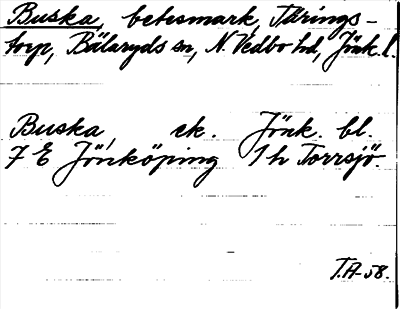 Buska, betesmark, Tärings-
torp, Bälaryds sn, N. Vedbo hd, Jönk. l.
Buska, ek. Jönk. bl.
7 E Jönköping 1 h Torrsjö.
T.A-58.